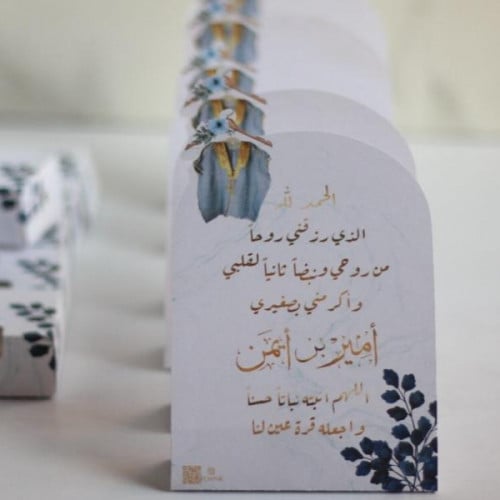 الحمد لله
الذي رزقني روحاً
من روحي ونبضاً ثانياً لقلبي
واكرمني بصغيري
أمير بن أيمن
اللهم انبته نباتاً حسناً
واجعله قرة عين لنا